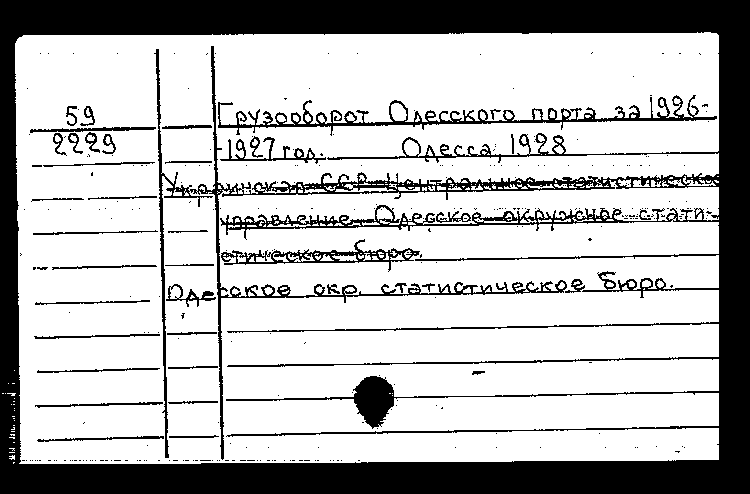 59
2229
Грузооборот Одесского порта за 1926-
-1927 год. Одесса, 1928
Украинская ССР Центральное статистическое
управление Одесское окружное стати-
стическое бюро.
Одесское окр. статистическое бюро.